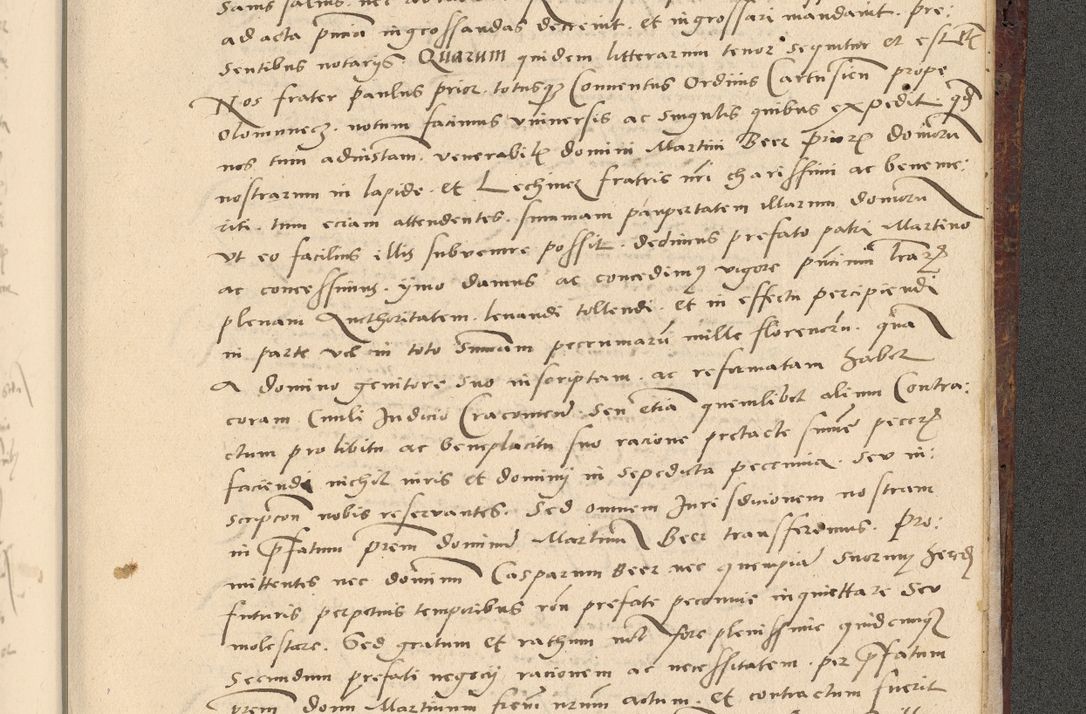 ad acta pñcia ingrossandas decrevit. et ingrossari mandavit. pre:
sentibus notarijs. Quarum quidem litterarum tenor sequitur et est talis
Nos frater paulus prior. totusqz Conventus Ordinis Cartusieñ prope
Olomuncz. notum facimus universis ac singulis quibus expedit. qd
nos tum ad instam. venerabilis domini Martini Beer prioris domorum
nostrarum in lapide. et Lechnicz fratris nri charissimi ac beneme:
riti. tum eciam attendentes. summam paupertatem illarum domorum
ut eo facilius illis subvenire possit. dedimus prefato patri Martino
ac concessimus. ymo damus ac concedimus vigore pñcium lraruz
plenam Authoritatem. levandi tollendi. et in effectu percipiendi
in parte vel in toto Summam pecuniarum mille florenorum. quam
a domino genitore suo inscriptam. ac reformatam habet
coram Civili Judicio Cracovienſ seu etiam quemlibet alium Contra:
ctum pro libitu ac beneplacitu suo racione pretacte summe pecuniarum
faciendi nichil iuris et dominij in sepedicta pecunia. seu in:
scripcone nobis reservantes. Sed omnem Jurisdicionem nostram
in prefatum prem dominum Martinum Beer transferimus. Pro:
mittentes nec dominum Casparum Beer nec quempiam suorum heredum
futuris perpetuis temporibus rone prefate pecunie inquiettare seu
molestare. Sed gratum et rathum nos fore plenissime quidcumqz
secundum prefati negocij racionem ac necessitatem. per prefatum
prem domi Martinum frem nrum actum. et contractum fuerit